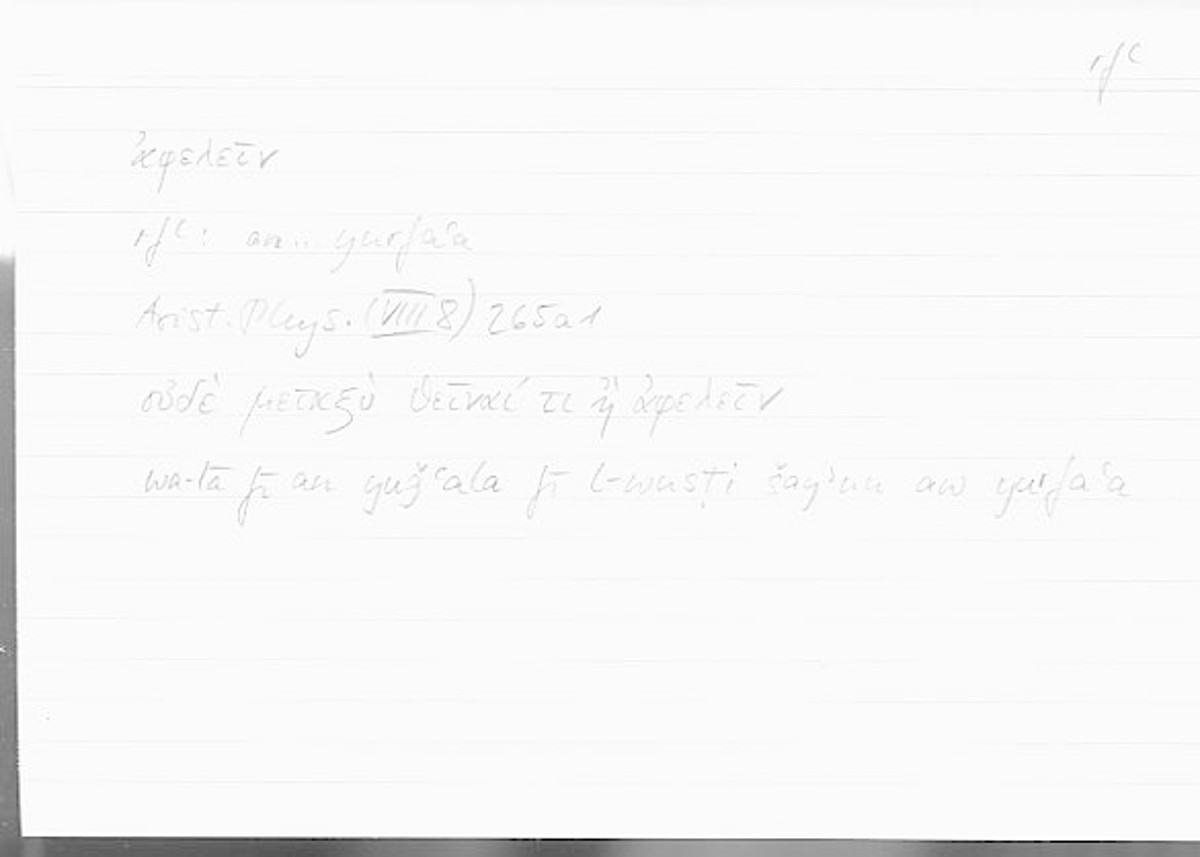 rfʿ
ἀφελεῖν
rfʿ: an... yurfaʿa
Arist. Phys. (VIII 8) 265a1
οὐδὲ μεταξὺ θεῖναί τι ἢ ἀφελεῖν
wa-lā fī an yuǧʿala fī l-wusṭi šayʾun aw yurfaʿa